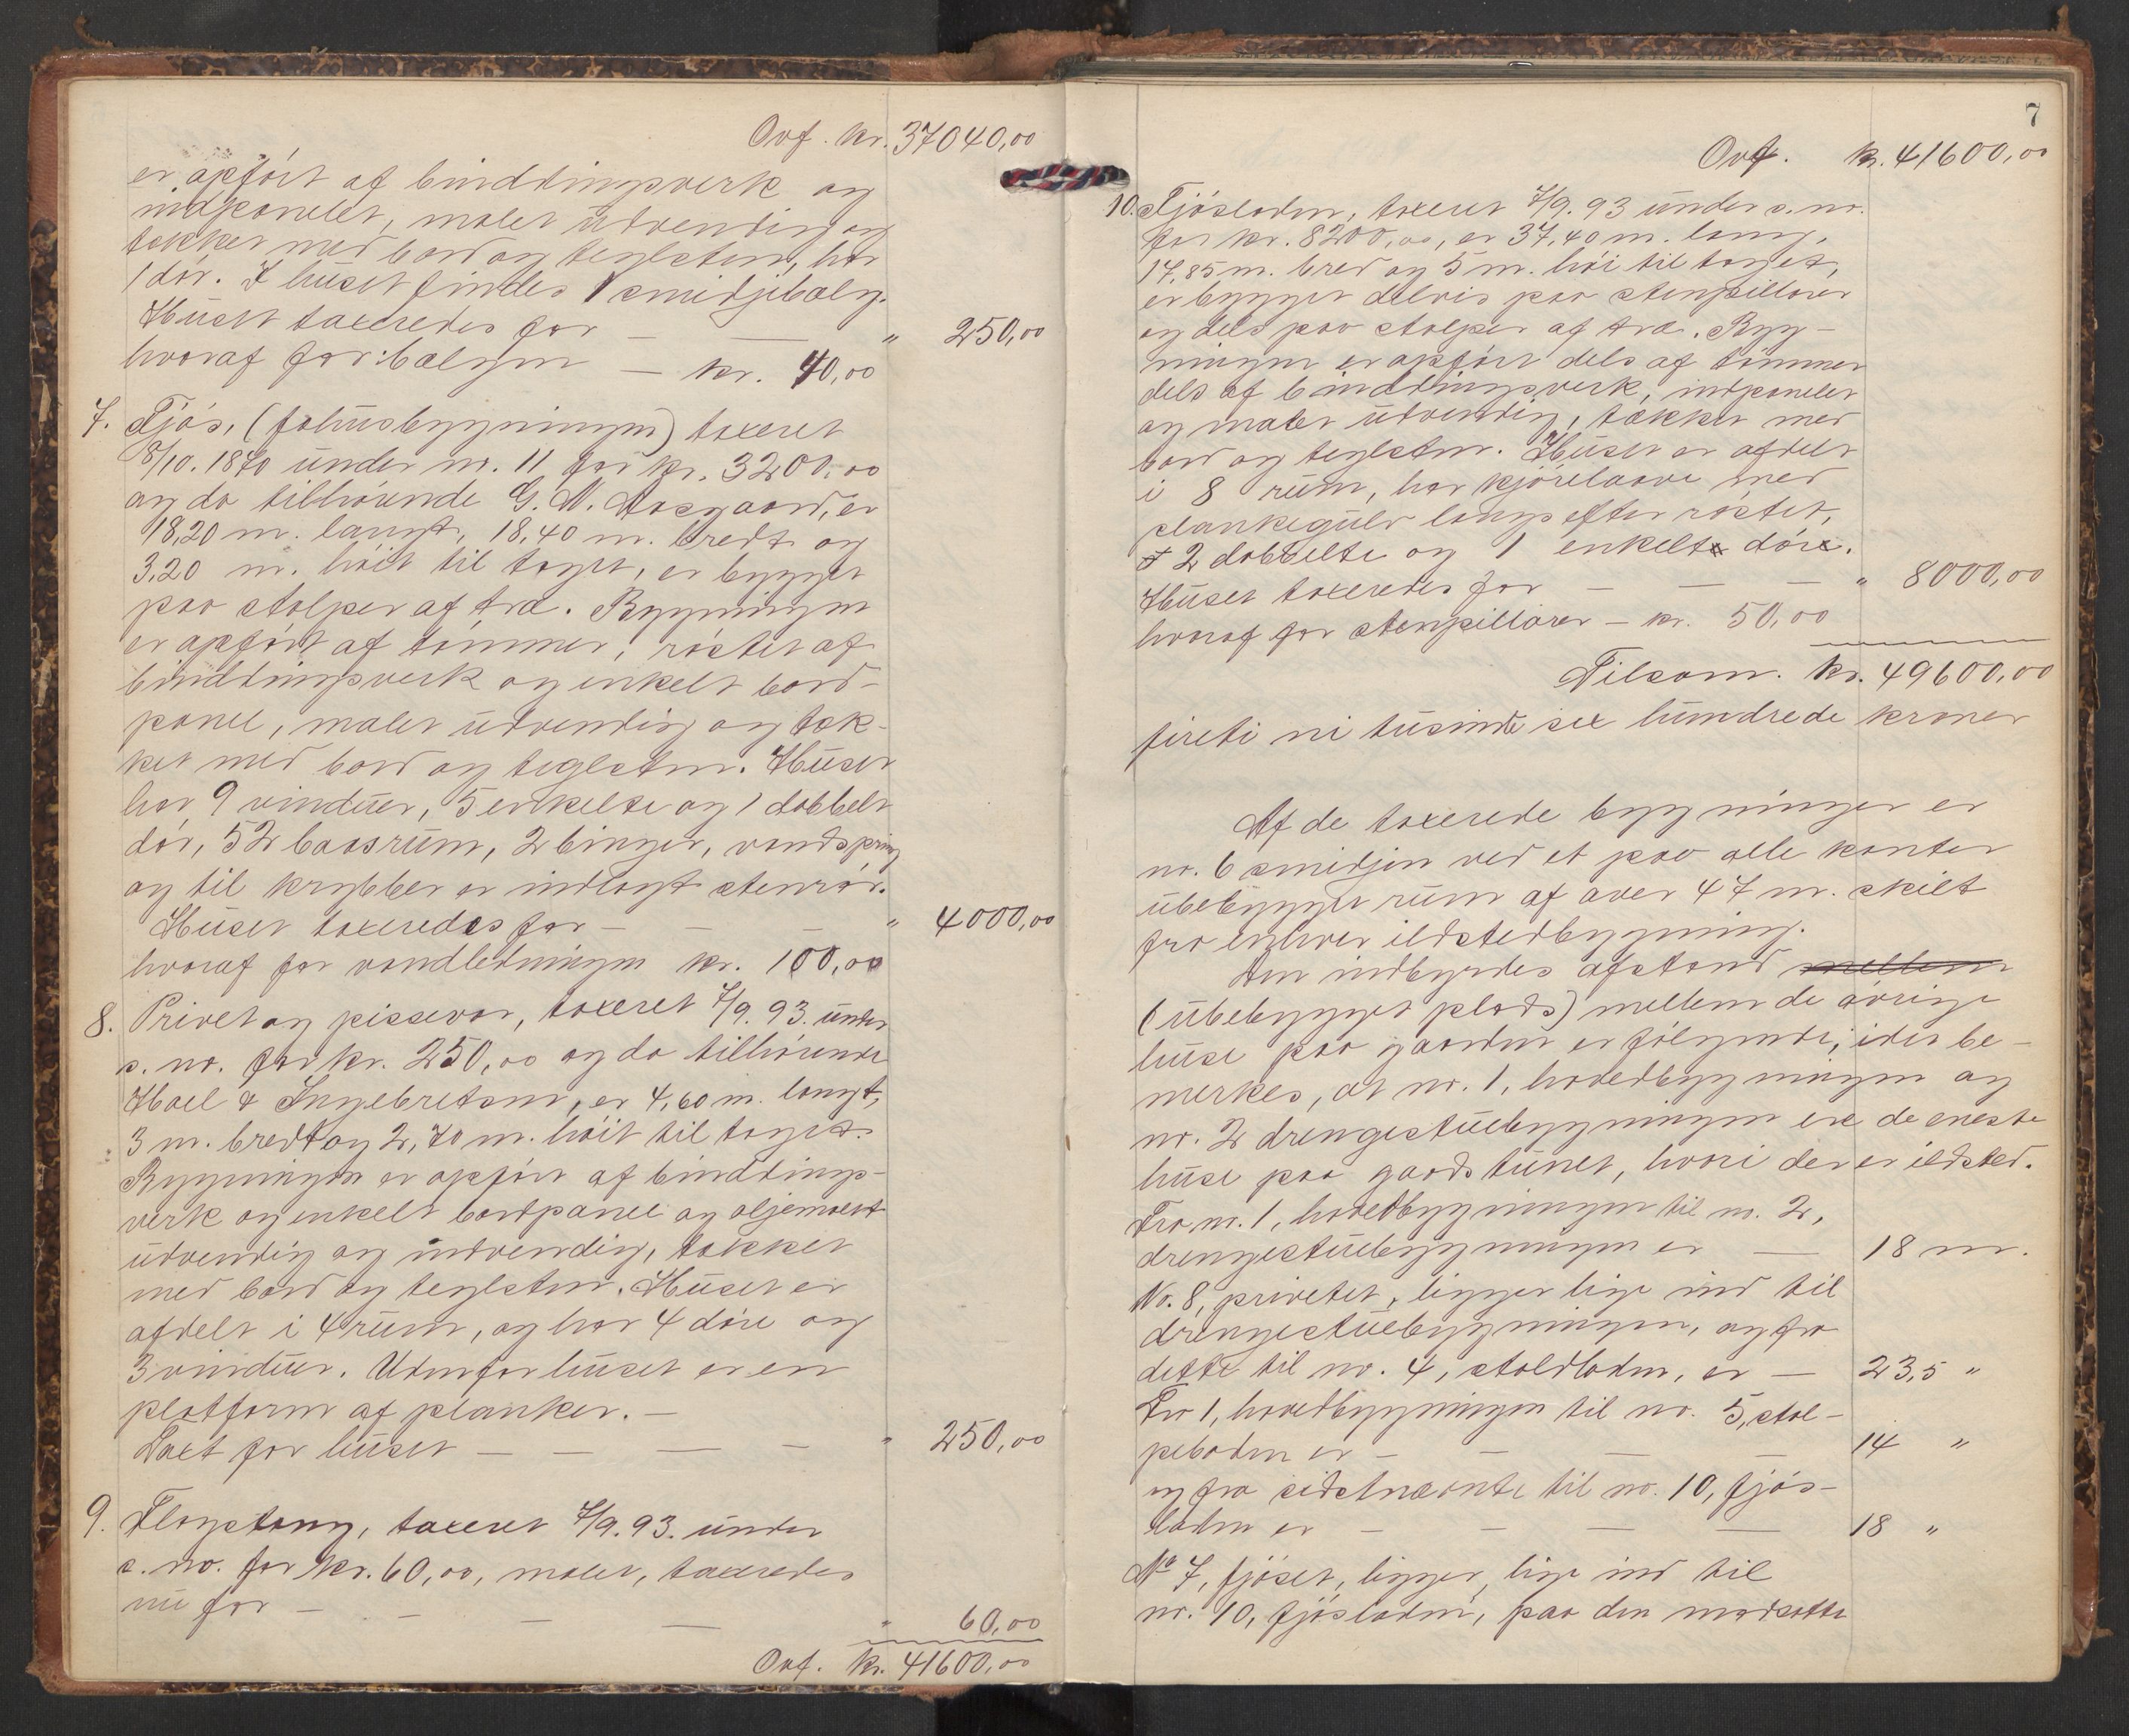 Ovf. kr. 37040,00
er opført af bindtingsverk og
indpanelet, malet udvendig og
tækket med bord og teglsten, har
1 dør. I huset findes 1 smidjebælg.
Huset taxeredes for — — " 250,00
hvoraf for bælgen — kr. 40,00
7. Fjøs, (føhusbygningen) taxeret
8/10. 1870 under nr. 11 for kr. 3200,00
og da tilhørende G. N. Aasgaard, er
18,20 m. langt, 18,40 m. bredt og
3,20 m. høit til taget, er bygget
paa stolper af træ. Bygningen
er opført af tømmer, røstet af
bindtingsverk og enkelt bord-
panel, malet udvendig og tæk-
ket med bord og teglsten. Huset
har 9 vinduer, 5 enkelte og 1 dobbelt
dør, 52 baasrum, 2 binger, vandspring
og til krybber er indlagt stenrør.
Huset taxeredes for — — — " 4000,00
hvoraf for vandledningen kr. 100,00
8. Privet og pissevar, taxeret 7/9. 93. under
s. no. for kr. 250,00 og da tilhørende
Hoel & Ingebretsen, er 4,60 m. langt,
3 m. bredt og 2,70 m. høit til taget.
Bygningen er opført af bindtings-
verk og enkelt bordpanel og oljemalt
udvendig og indvendig, tækket
med bord og teglsten. Huset er
afdelt i 4 rum, og har 4 døre og
3 vinduer. Udenfor huset er en
platform af planker. —
Taxt for huset — — — — " 250,00
9. Flagstang, taxeret 7/9. 93. under
s. no. for kr. 60,00, malet, taxeredes
nu for — — — — " 60,00
Ovf. kr. 41600,00
7
Ovf. kr. 41600,00
10. Fjøsladen, taxeret 7/9. 93 under s. no.
for kr. 8200,00, er 37,40 m. lang,
17,85 m. bred og 5 m. høi til taget,
er bygget delvis paa stenpillarer
og dels paa stolper af træ. Byg-
ningen er opført dels af tømmer
dels af bindtingsverk, indpanelet
og malet udvendig, tækket med
bord og teglsten. Huset er afdelt
i 8 rum, har kjørelaave med
plankegulv langs efter røstet,
2 dobbelte og 1 enkelt dør.
Huset taxeredes for — — — " 8000,00
hvoraf for stenpillarer — kr. 50,00
Tilsam. kr. 49600,00
fireti ni tusinde sex hundrede kroner
Af de taxerede bygninger er
nr. 6 smidjen ved et paa alle kanter
ubebygget rum af over 47 m. skilt
fra enhver ildstedbygning.
Den indbyrdes afstand mellem
(ubebygget plads) mellem de øvrige
huse paa gaarden er følgende, idet be-
merkes, at nr. 1, hovedbygningen og
nr. 2 drengestuebygningen ere de eneste
huse paa gaardstunet, hvori der er ildsted.
Fra nr. 1, hovedbygningen til nr. 2,
drengestuebygningen er — 18 m.
No. 8, privetet, ligger lige ind til
drengestuebygningen, og fra
dette til nr. 4, staldladen, er — 23,5 "
Fra 1, hovedbygningen til nr. 5, stol-
peboden er — — — — 14 "
og fra sidstnævnte til nr. 10, fjøs-
laden er — — — — 18 "
No 7, fjøset, ligger lige ind til
nr. 10, fjøsladen, paa den modsatte